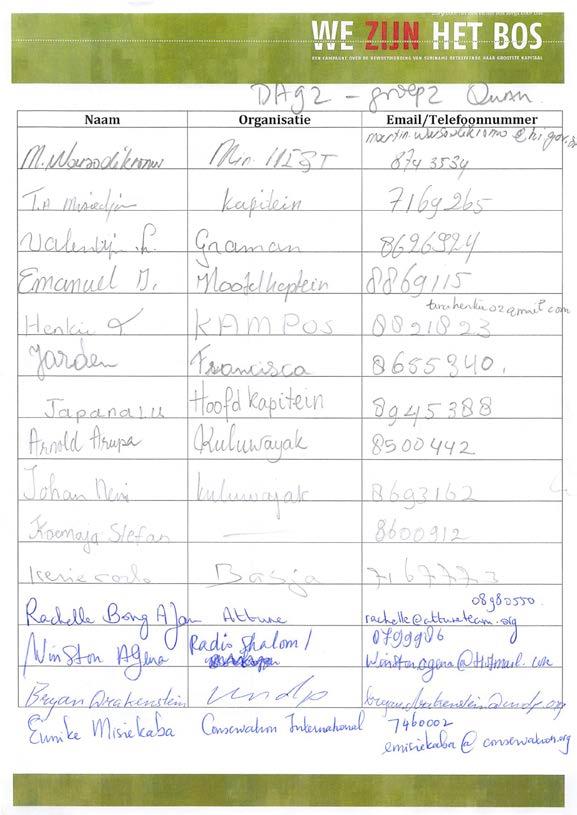 WE ZIJN HET BOS
EEN CAMPAGNE OVER DE BEWUSTWORDING VAN SURINAME BETREFFENDE HAAR GROOTSTE KAPITAAL
DAg 2 - groep 2
Naam Organisatie Email/Telefoonnummer
M. Min. 874 3534
T.A Misiedjan kapitein 7169265
Valentijn Graman 8626924
Emanuel D. Hoofdkaptein 8869115
Henkie KAMPOS 8821823
Jarden Francisca 8655340.
Japanalu Hoofd Kapitein 8945388
Arnold Arupa Kuluwayak 8500442
Johan kuluwajak 8693162
Koemaja Stefan — 8600912
Basja 7167773
08980550.
Rachelle Bong A Jan Attune rachelle@attuneteam.org
0799986
Winston Agena Radio Shalom / Winstonagena@Hotmail.com
Bryan Drakenstein undp bryan.drakenstein@undp.org
Eunike Misiekaba Conservation International 7460002
emisiekaba@conservation.org